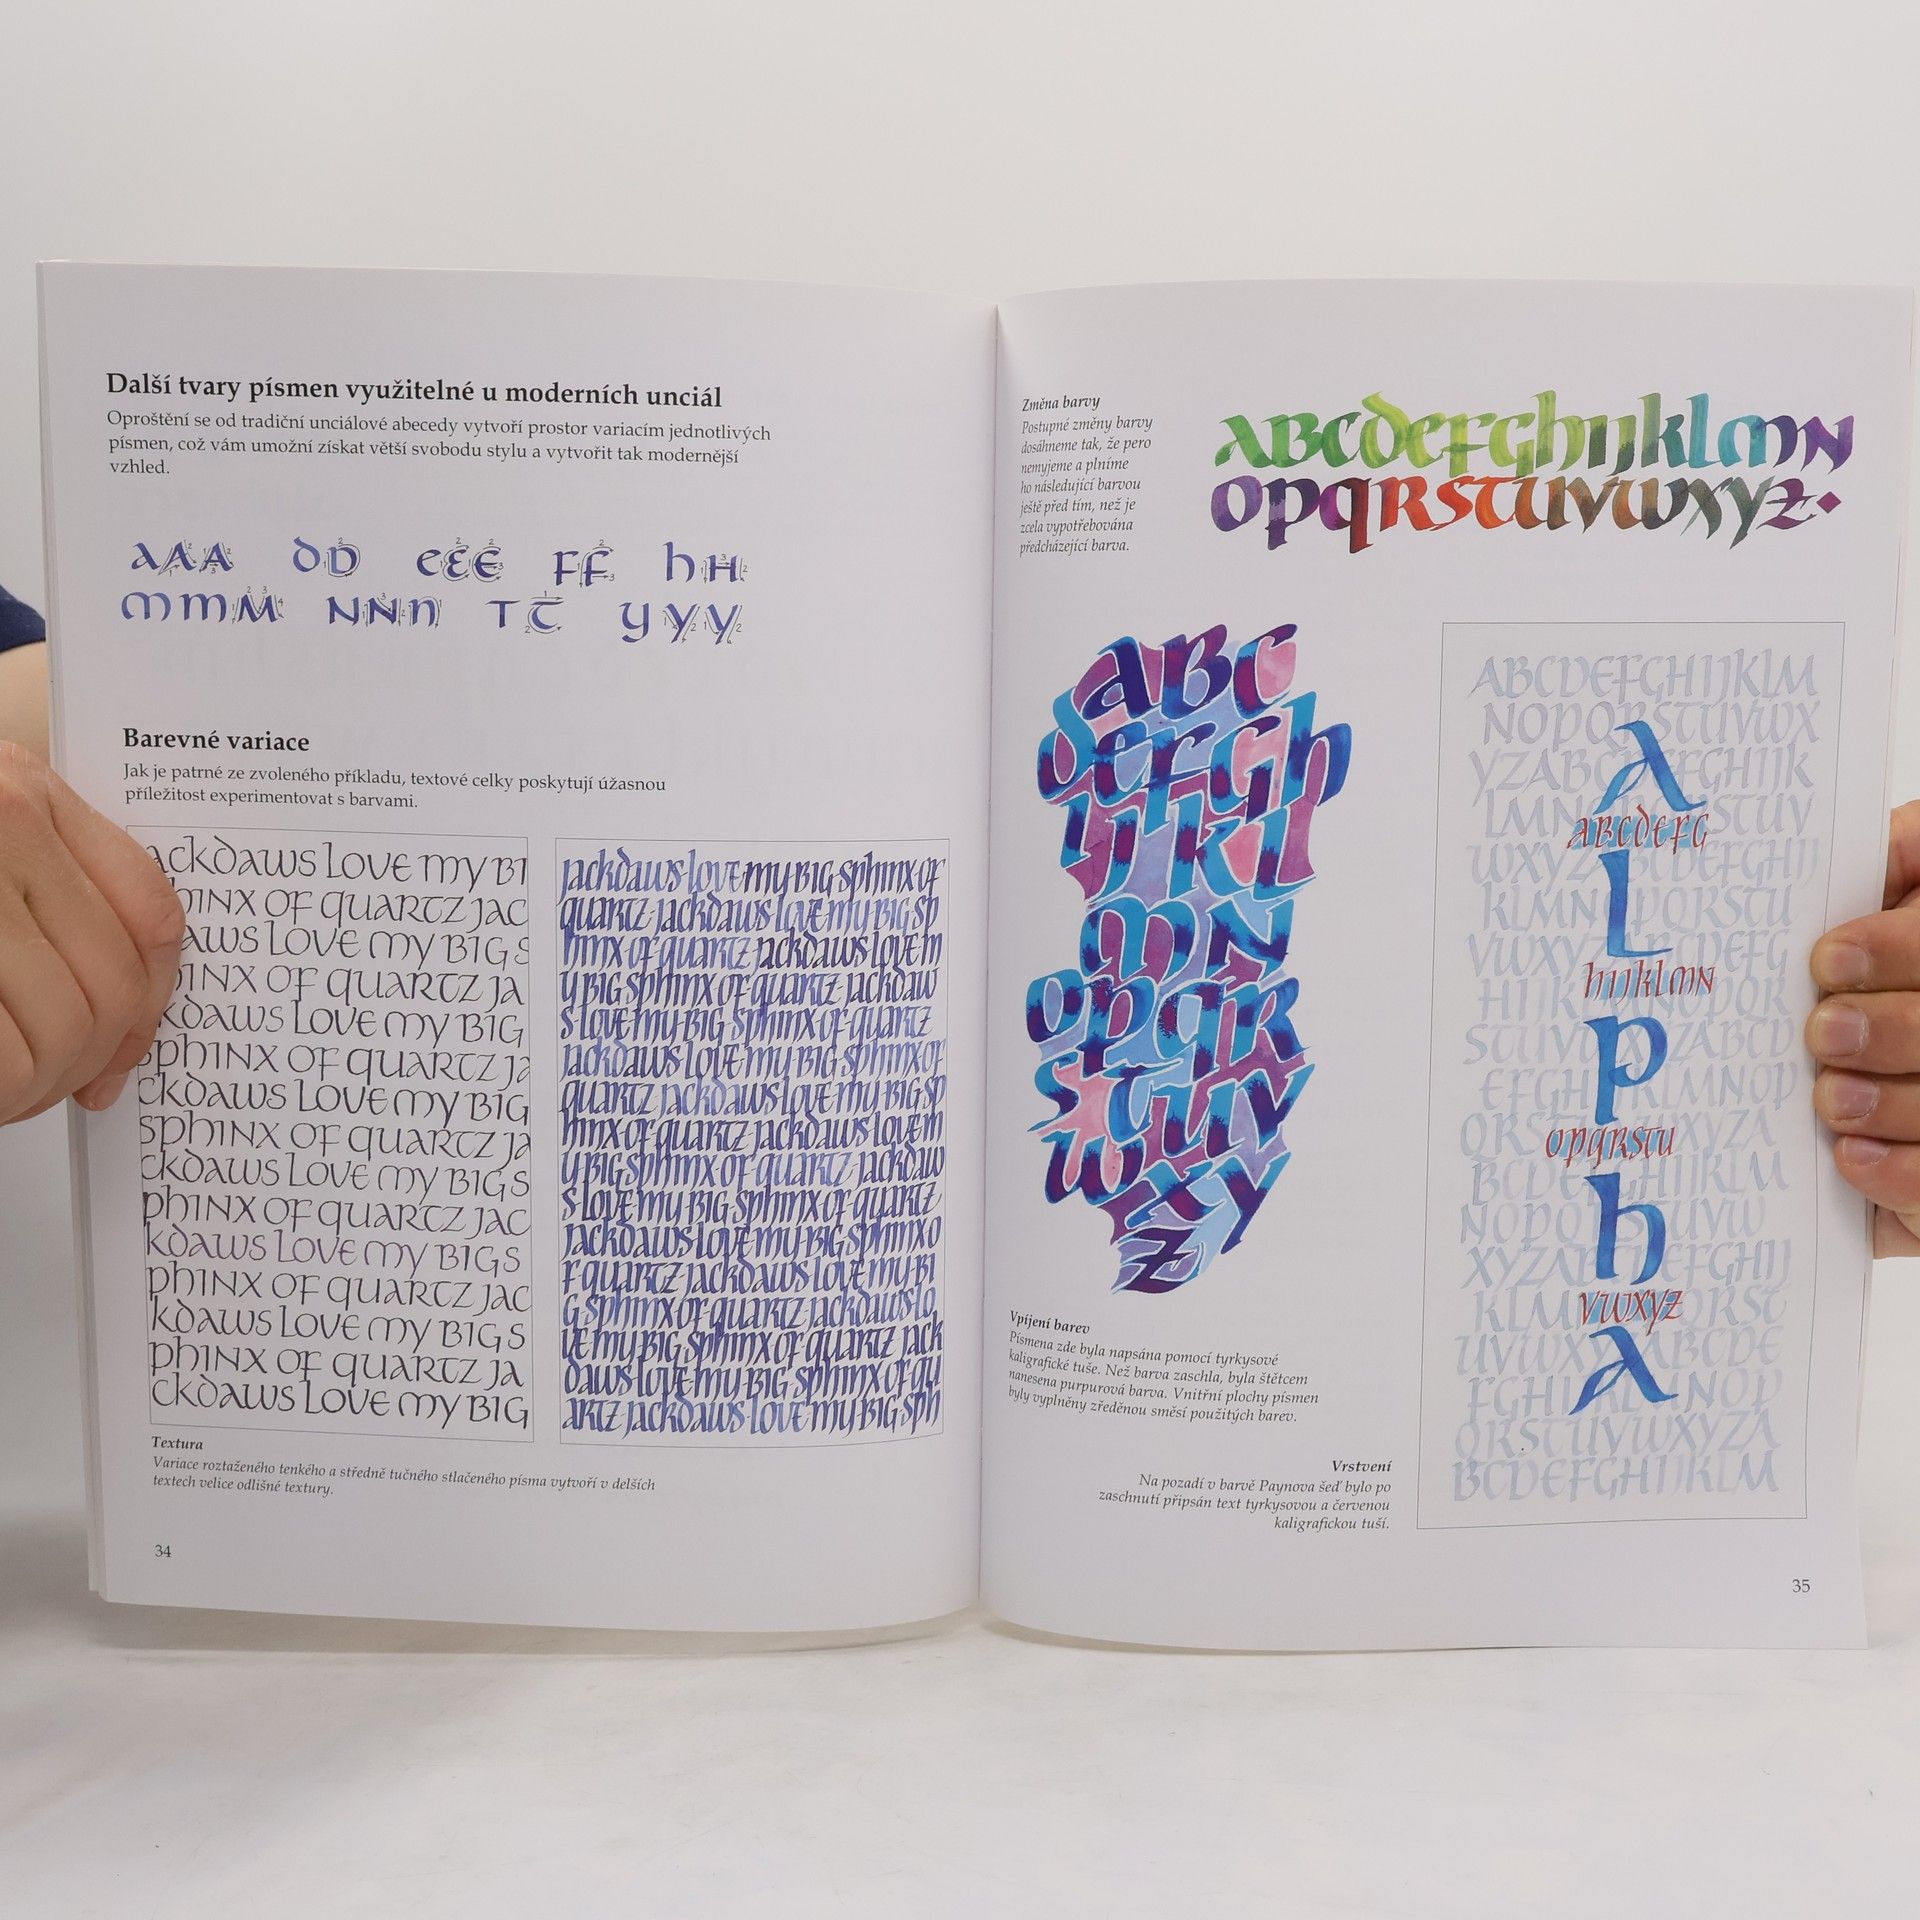 Další tvary písmen využitelné u moderních unciál
Oproštění se od tradiční unciálové abecedy vytvoří prostor variacím jednotlivých
písmen, což vám umožní získat větší svobodu stylu a vytvořit tak modernější
vzhled.
aAA dD eEE FF hH
mmM NNn TT yyy
Barevné variace
Jak je patrné ze zvoleného příkladu, textové celky poskytují úžasnou
příležitost experimentovat s barvami.
ackdaws love my BI
phinx of quartz jac
aws love my BIG S
hinx of quartz ja
kdaws love my BIG
sphinx of quartz ja
ckdaws love my BIG
sphinx of quartz ja
ckdaws love my BIG S
phinx of quartz jac
kdaws love my BIG S
phinx of quartz jac
kdaws love my BIG S
phinx of quartz ja
ckdaws love my BIG
jackdaws·love my·BIG·sphinx of
quartz·jackdaws·love my·BIG·sp
hinx·of quartz jackdaws love m
y BIG sphinx of quartz·jackdaw
s·love my·BIG·sphinx of·quartz
jackdaws·love my·BIG·sphinx of
quartz jackdaws·love my BIG·sp
hinx of quartz jackdaws·love m
y BIG sphinx·of quartz·jackdaw
s·love my·BIG·sphinx of·quartz
jackdaws·love my BIG·sphinx o
f quartz·jackdaws·love my BI
G·sphinx of·quartz·jackdaws·lo
ve my BIG sphinx of quartz jack
daws·love my·BIG sphinx of qu
artz jackdaws·love my BIG sph
Textura
Variace roztaženého tenkého a středně tučného stlačeného písma vytvoří v delších
textech velice odlišné textury.
34
Změna barvy
Postupné změny barvy
dosáhneme tak, že pero
nemyjeme a plníme
ho následující barvou
ještě před tím, než je
zcela vypotřebována
předcházející barva.
aBcdefghijklmn
opqrstuvwxyz
aBc
defgh
ijkl
mn
opqr
stuv
wxy
z
Vpíjení barev
Písmena zde byla napsána pomocí tyrkysové
kaligrafické tuše. Než barva zaschla, byla štětcem
nanesena purpurová barva. Vnitřní plochy písmen
byly vyplněny zředěnou směsí použitých barev.
Vrstvení
Na pozadí v barvě Paynova šeď bylo po
zaschnutí připsán text tyrkysovou a červenou
kaligrafickou tuší.
ABCDEFGHIJKLM
NOPQRSTUVWX
A
ABCDEFG
L
hijklmn
p
opqrstu
h
vwxyz
A
BCDEFGHIJKLM
35